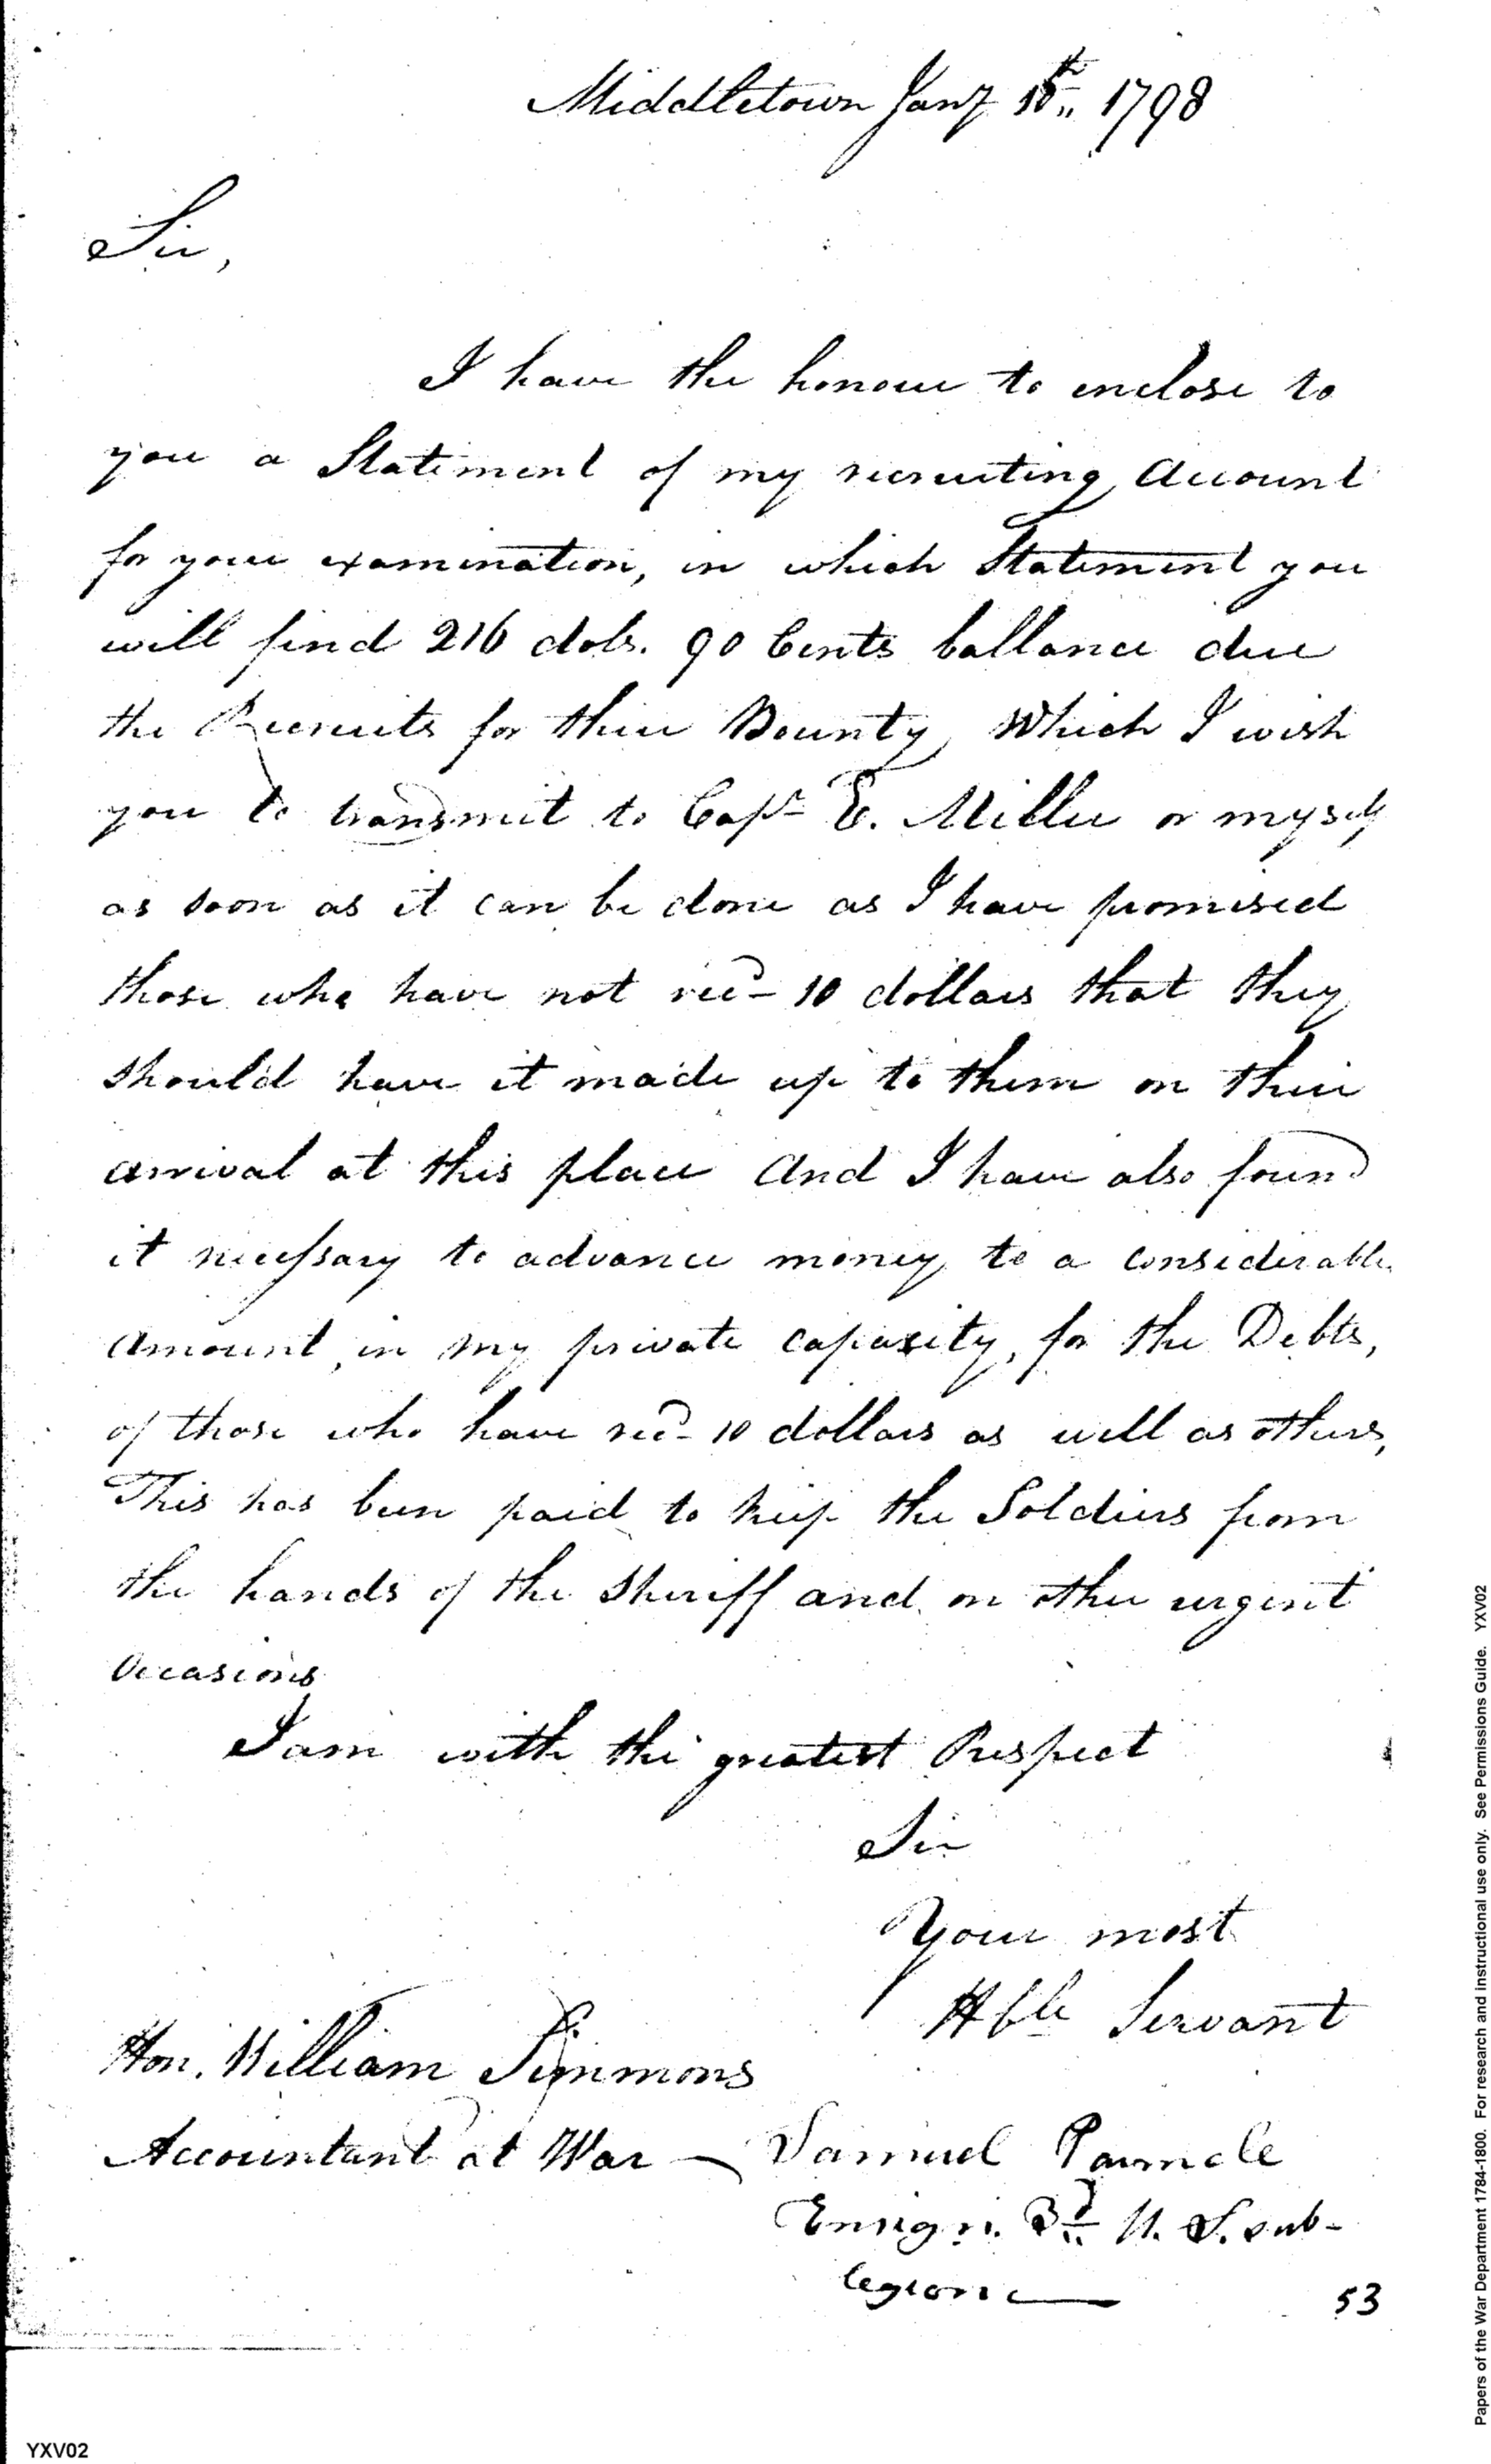 Middletown Jany 18th 1798
Sir,
I have the honour to enclose to
you a Statement of my recruiting Account
for your examination, in which Statement you
will find 216 dols. 90 Cents ballance due
the Recruits for their Bounty, Which I wish
you to transmit to Capt E. Miller or myself
as soon as it can be done as I have promised
those who have not recd 10 dollars that they
should have it made up to them on their
arrival at this place And I have also found
it necessary to advance money, to a considerable
Amount, in my private capasity, for the Debts,
of those who have recd 10 dollars as well as others,
This has been paid to keep the Soldiers from
the hands of the Sheriff and on other urgent
Occasions
I am with the greatest Respect
Sir
Your most
Hble Servant
Hon. William Simmons
Accountant at War — Samuel Parmele
Ensign. 3d U. S. sub-
legion
53
YXV02
Papers of the War Department 1784-1800. For research and instructional use only. See Permissions Guide. YXV02